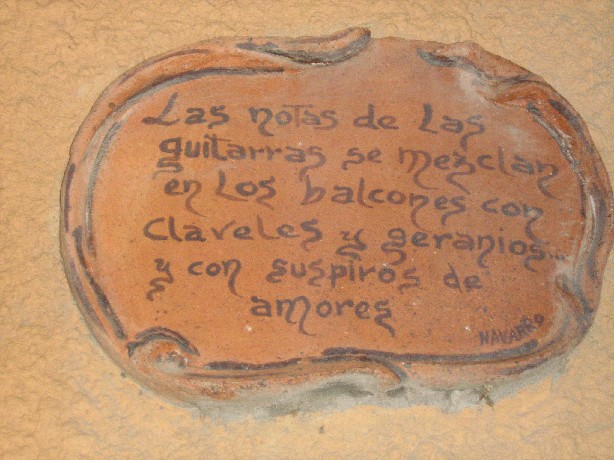 Las notas de las
guitarras se mezclan
en los balcones con
claveles y geranios...
y con suspiros de
amores
NAVARRO